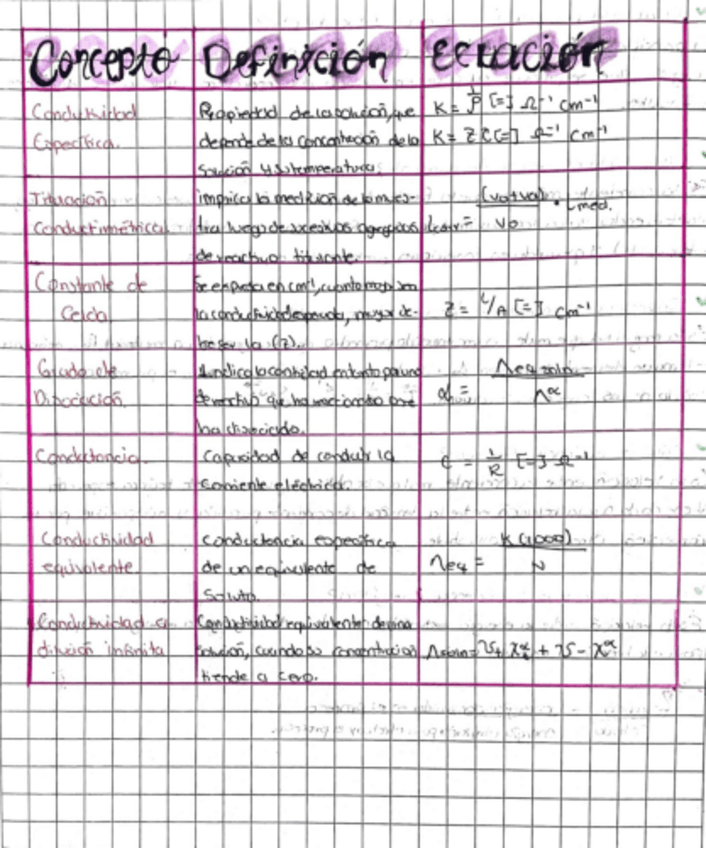 Concepto Definición Ecuación
Conductividad
Específica.
Propiedad de la solución, que
depende de la concentración de la
solución y su temperatura.
K = 1/ρ [=] Ω⁻¹ cm⁻¹
K = Z C [=] Ω⁻¹ cm⁻¹
Titulación
Conductimétrica
implica la medición de la mues-
tra luego de sucesivos agregados
de reactivo titulante.
Lcorr = (Vo+Va)/Vo · Lmed.
Constante de
Celda
Se expresa en cm⁻¹, cuanto mayor sea
la conductividad esperada, mayor de-
be ser la (Z).
Z = L/A [=] cm⁻¹
Grado de
Disociación.
indica la cantidad en tanto por uno
de reactivo que ha reaccionado o se
ha disociado.
α = Λeq soln / Λ∞
Conductancia.
Capacidad de conducir la
corriente eléctrica.
C = 1/R [=] Ω⁻¹
Conductividad
equivalente
Conductancia específica
de un equivalente de
Soluto.
Λeq = K(1000)/N
Conductividad a
dilución infinita
Conductividad equivalente de una
solución, cuando su concentración
tiende a cero.